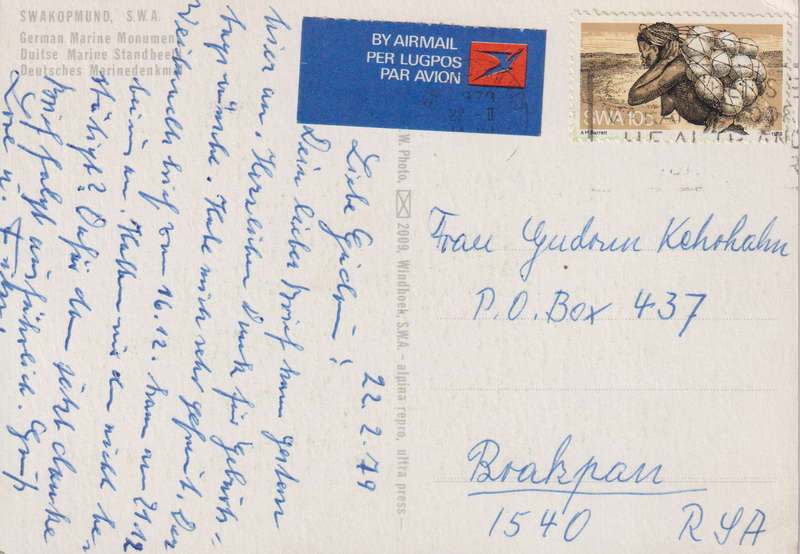 SWAKOPMUND, S.W.A.
German Marine Monument
Duitse Marine Standbeeld
Deutsches Marinedenkmal
BY AIRMAIL
PER LUGPOS
PAR AVION
SWA 10c
22.2.79
Liebe Gudrun!
Dein lieber Brief kam gestern
hier an. Herzlichen Dank für Geburts-
tagswünsche. Habe mich sehr gefreut. Der
Weihnachtsbrief vom 16.12. kam am 21.12
bei mir an. Hatten wir den nicht be-
stätigt? Dafür dann jetzt danke
Brief folgt ausführlich. Gruß
Lore u.
W. Photo, 2009, Windhoek, S.W.A. - alpina repro, ultra press
Frau Gudrun Kehrhahn
P.O. Box 437
Brakpan
1540 RSA